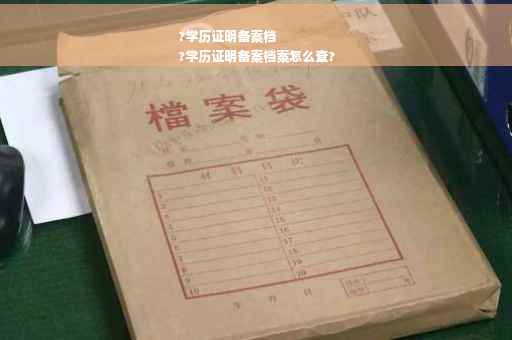 ?学历证明备案档
?学历证明备案档案怎么查?
檔案袋
材料目次
1
2
3
4
5
6
7
8
9
10
11
12
13
14
15
16
17
18
19
20
年 月 日